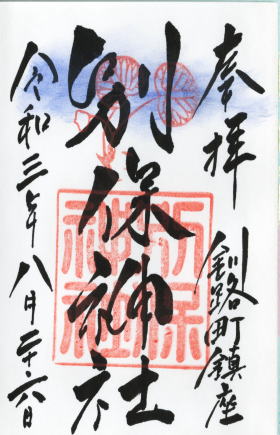 奉拝
釧路町鎮座
別保神社
令和三年八月二十六日